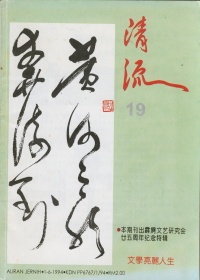 清流
19
●本期刊出霹雳文艺研究会
廿五周年纪念特辑
文學亮麗人生
AURAN JERNIH•1-6-1994•KDN PP6767/1/94•RM2.00